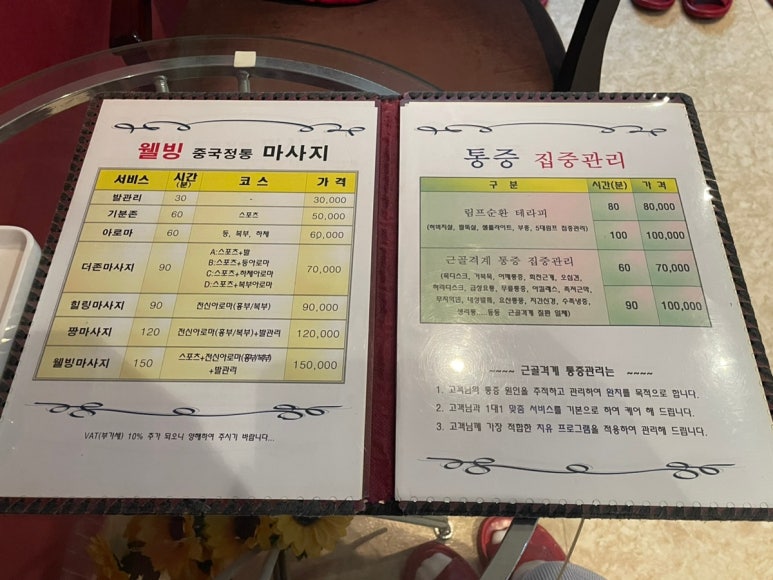 웰빙 중국정통 마사지
서비스 시간(분) 코 스 가 격
발관리 30 - 30,000
기분존 60 스포츠 50,000
아로마 60 등, 복부, 하체 60,000
더존마사지 90 A:스포츠+발 70,000
B:스포츠+등아로마
C:스포츠+하체아로마
D:스포츠+복부아로마
힐링마사지 90 전신아로마(흉부/복부) 90,000
짱마사지 120 전신아로마(흉부/복부)+발관리 120,000
웰빙마사지 150 스포츠+전신아로마(흉부/복부) 150,000
+발관리
VAT(부가세) 10% 추가 되오니 양해하여 주시기 바랍니다...
통증 집중관리
구 분 시간(분) 가 격
림프순환 테라피 80 80,000
(허벅지살, 팔뚝살, 셀룰라이트, 부종, 5대림프 집중관리) 100 100,000
근골격계 통증 집중관리 60 70,000
(목디스크, 거북목, 어깨통증, 회전근개, 오십견,
허리디스크, 급성요통, 무릎통증, 아킬레스, 족저근막,
무지외반, 내성발톱, 요산통풍, 지간신경, 수족냉증, 90 100,000
생리통....등등 근골격계 질환 일체)
~~~~ 근골격계 통증관리는 ~~~~
1. 고객님의 통증 원인을 추적하고 관리하여 완치를 목적으로 합니다.
2. 고객님과 1대1 맞춤 서비스를 기본으로 하여 케어 해 드립니다.
3. 고객님께 가장 적합한 치유 프로그램을 적용하여 관리해 드립니다.